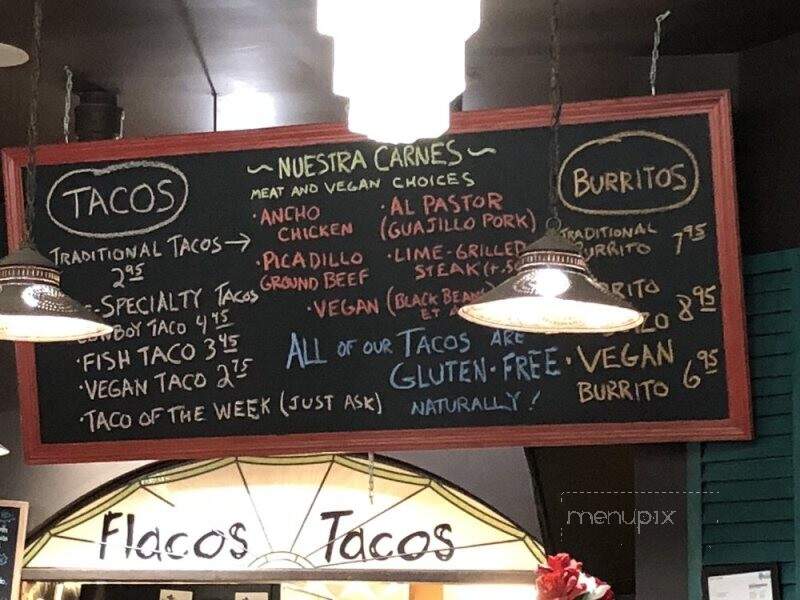 TACOS
TRADITIONAL TACOS →
2.95
SPECIALTY TACOS
COWBOY TACO 4.45
• FISH TACO 3.45
• VEGAN TACO 2.75
• TACO OF THE WEEK (JUST ASK)
~ NUESTRA CARNES ~
MEAT AND VEGAN CHOICES
• ANCHO
CHICKEN
• PICADILLO
GROUND BEEF
• AL PASTOR
(GUAJILLO PORK)
• LIME-GRILLED
STEAK
• VEGAN (BLACK BEAN
ALL OF OUR TACOS ARE
GLUTEN-FREE
NATURALLY!
BURRITOS
TRADITIONAL
BURRITO 7.95
8.95
• VEGAN
BURRITO 6.95
Flacos Tacos
menupix